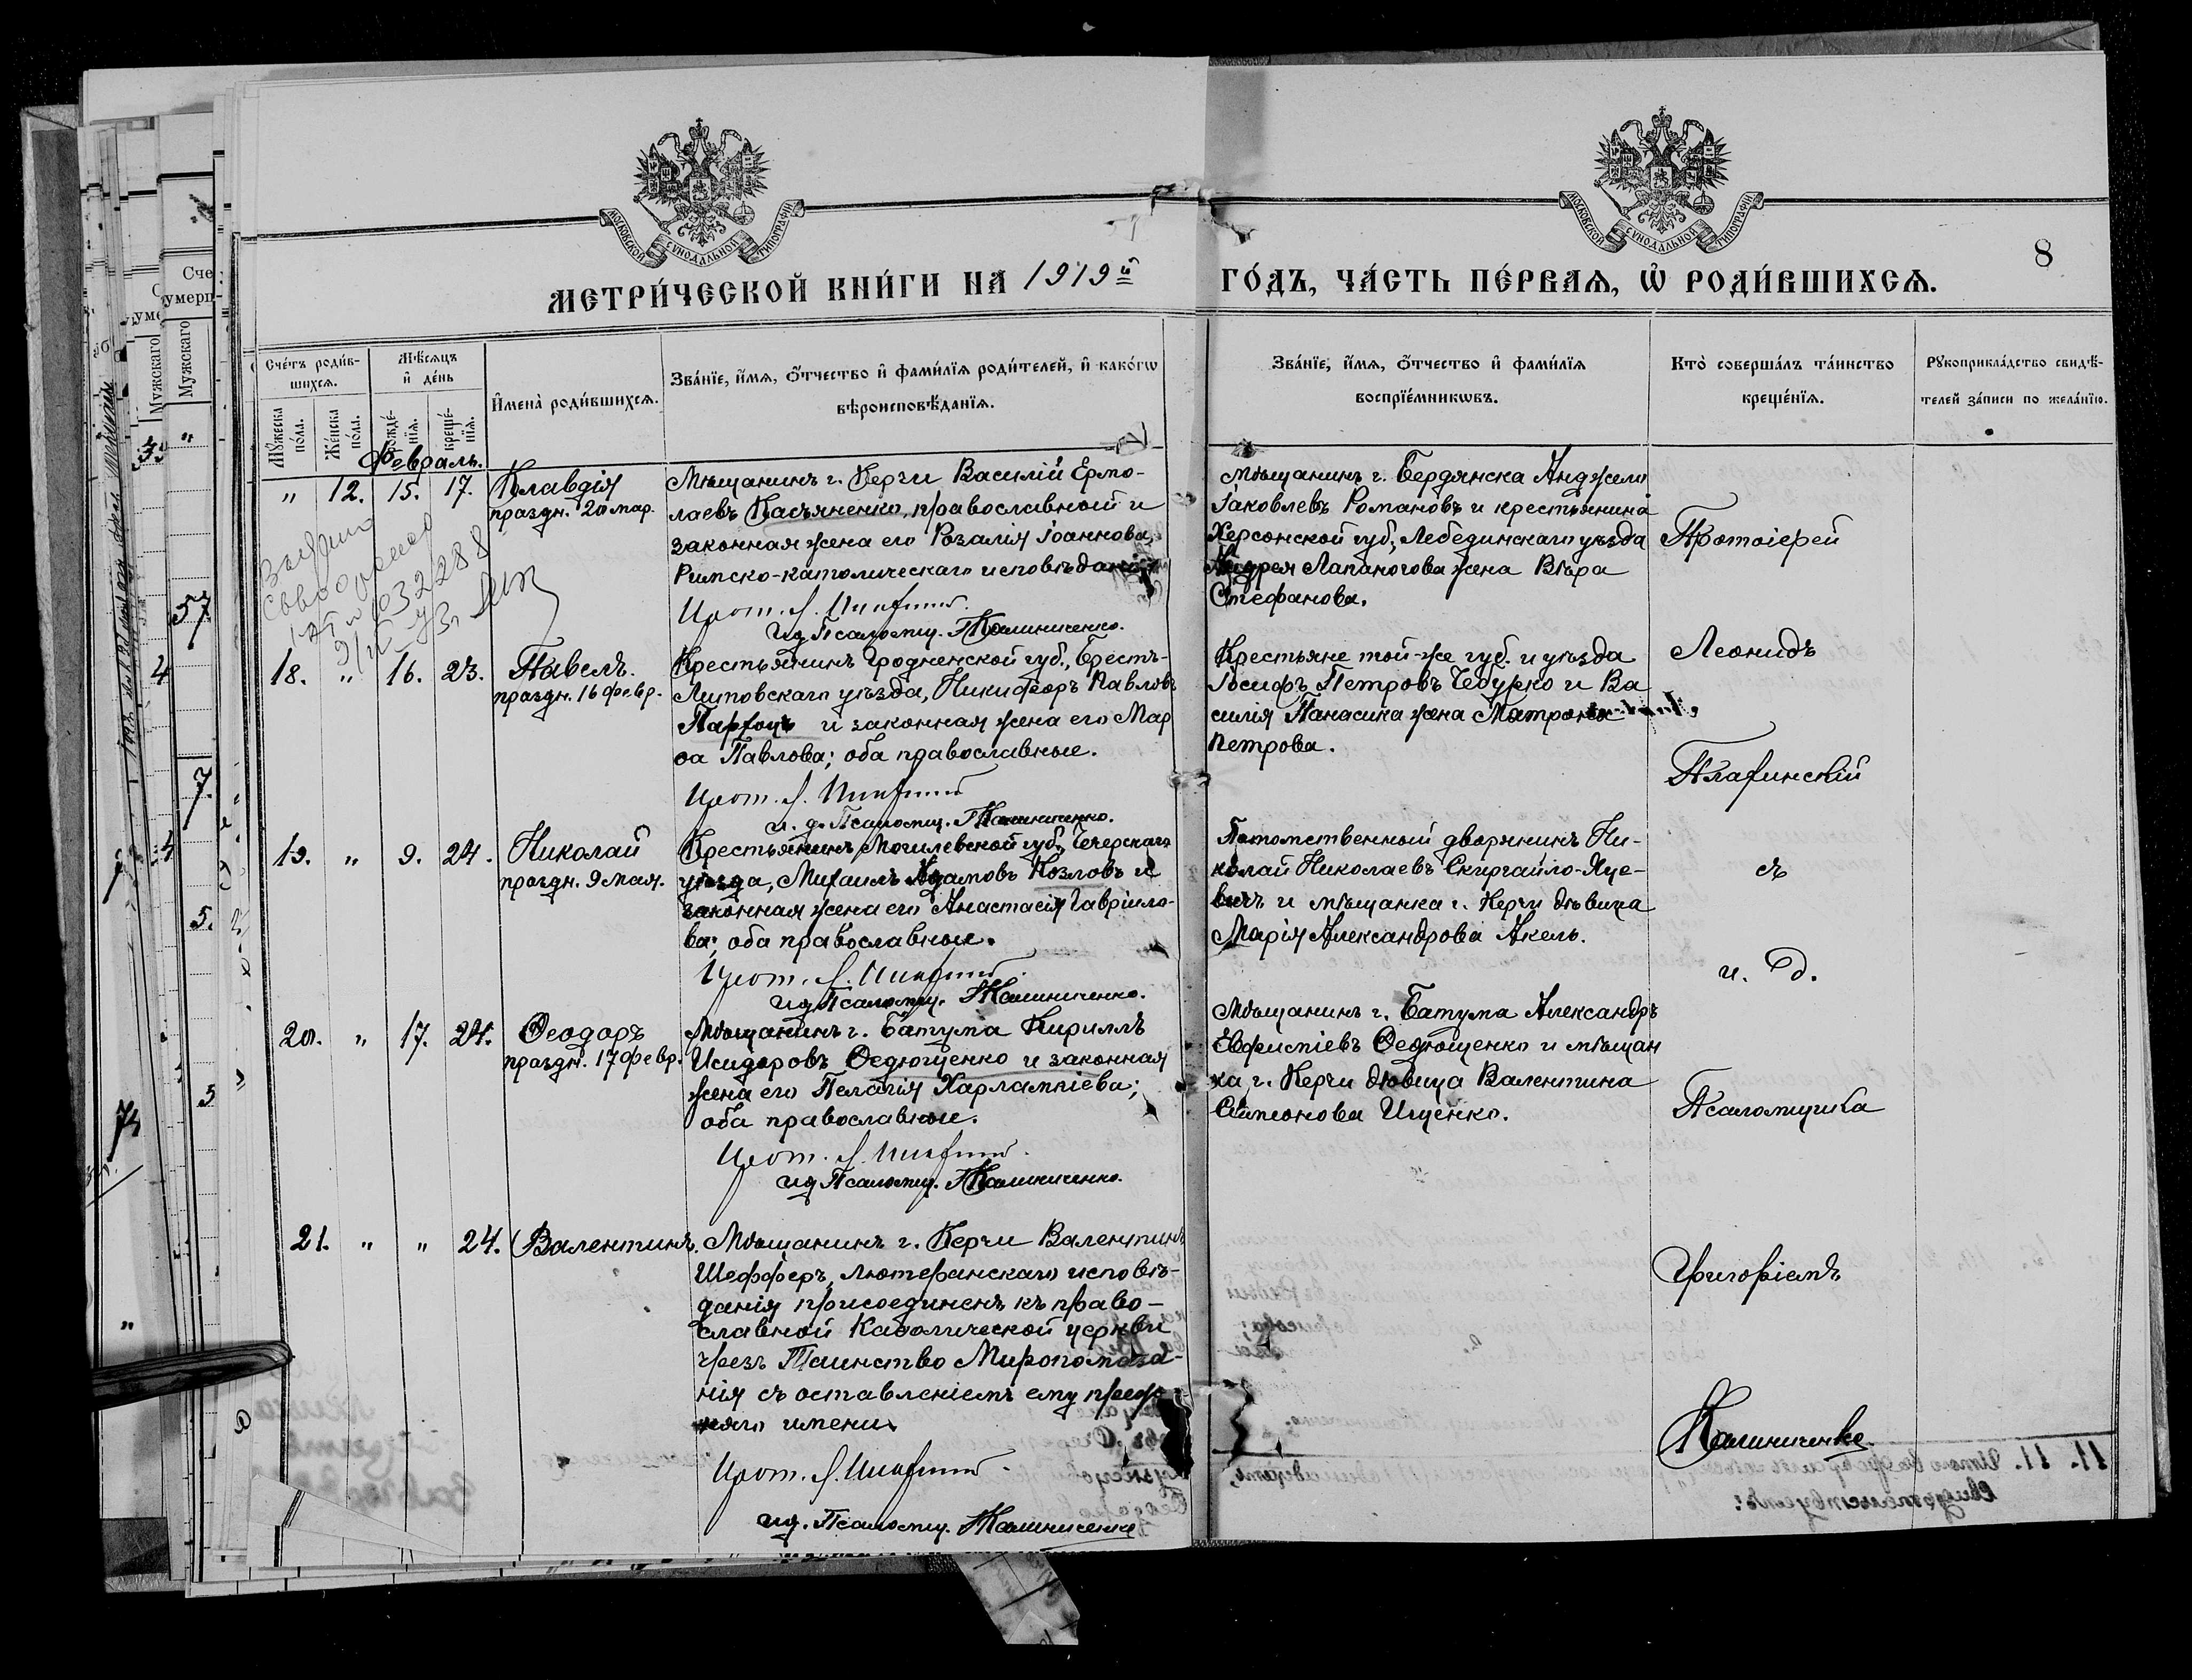 МОСКОВСКОЙ СѴНОДАЛЬНОЙ ТИПОГРАФІИ
МОСКОВСКОЙ СѴНОДАЛЬНОЙ ТИПОГРАФІИ
8
МЕТРИ́ЧЕСКОЙ КНИ́ГИ НА 1919й ГО́ДЪ, ЧА́СТЬ ПЕ́РВАЯ, Ѡ҆ РОДИ́ВШИХСЯ.
Сче́тъ роди́в-
шихся.
Мꙋ́жеска по́ла.
Же́нска по́ла.
Мѣ́сяцъ
и҆ де́нь
рожде́-
нїя.
креще́-
нїя.
И҆мена̀ роди́вшихся.
Зва́нїе, и҆́мя, ѻ҆́тчество и҆ фами́лїя роди́телей, и҆ како́гѡ
вѣроисповѣ́данїя.
Зва́нїе, и҆́мя, ѻ҆́тчество и҆ фами́лїя
воспрїе́мникѡвъ.
Кто̀ соверша́лъ та́инство
креще́нїя.
Рꙋкоприкла́дство свидѣ́-
телей за́писи по жела́нїю.
Февраль.
" 12. 15. 17. Клавдія
праздн. 20 мар.
Мѣщанинъ г. Керчи Василій Ермо-
лаевъ Касьяненко, православный и
законная жена его Розалія Іоаннова,
Римско-католическаго исповѣданія
Прот.
ид Псаломщ. Калиниченко.
Мѣщанинъ г. Бердянска Анджели
Іаковлевъ Романовъ и крестьянина
Херсонской губ., Лебединскаго уѣзда
Андрея Лапаногова жена Вѣра
Стефанова.
Протоіерей
18. " 16. 23. Павелъ.
праздн. 16 февр.
Крестьянинъ Гродненской губ., Брестъ-
Литовскаго уѣзда, Никифоръ Павловъ
и законная жена его Мар
ѳа Павлова; оба православные.
Прот.
и. д. Псаломщ. Калиниченко.
Крестьяне той-же губ. и уѣзда
Іосифъ Петровъ Чебурко и Ва
силія Панасика жена Матрона
Петрова.
Леонидъ
19. " 9. 24. Николай
праздн. 9 мая.
Крестьянинъ Могилевской губ., Чечерскаго
уѣзда, Михаилъ Адамовъ Козловъ и
законная жена его Анастасія Гавріило-
ва; оба православные.
Прот.
ид Псаломщ. Калиниченко.
Потомственный дворянинъ Ни-
колай Николаевъ Скиргайло-Яце-
вичъ и мѣщанка г. Керчи дѣвица
Марія Александрова Акель.
съ
и. д.
20. " 17. 24. Ѳеодоръ
праздн. 17 февр.
Мѣщанинъ г. Батума Кириллъ
Исидоровъ Ѳедющенко и законная
жена его Пелагія Харлампіева;
оба православные.
Прот.
ид Псаломщ. Калиниченко.
Мѣщанинъ г. Батума Александръ
Ѳедющенко и мѣщан
ка г. Керчи дѣвица Валентина
Симонова Ищенко.
Псаломщика
21. " " 24. Валентинъ.
Мѣщанинъ г. Керчи Валентинъ
Шефферъ, лютеранскаго исповѣ-
данія присоединенъ къ право-
славной Каѳолической церкви
чрезъ Таинство Миропомаза-
нія съ оставленіемъ ему преж-
няго имени.
Прот.
ид. Псаломщ. Калиниченко
Григоріемъ
Калиниченко.